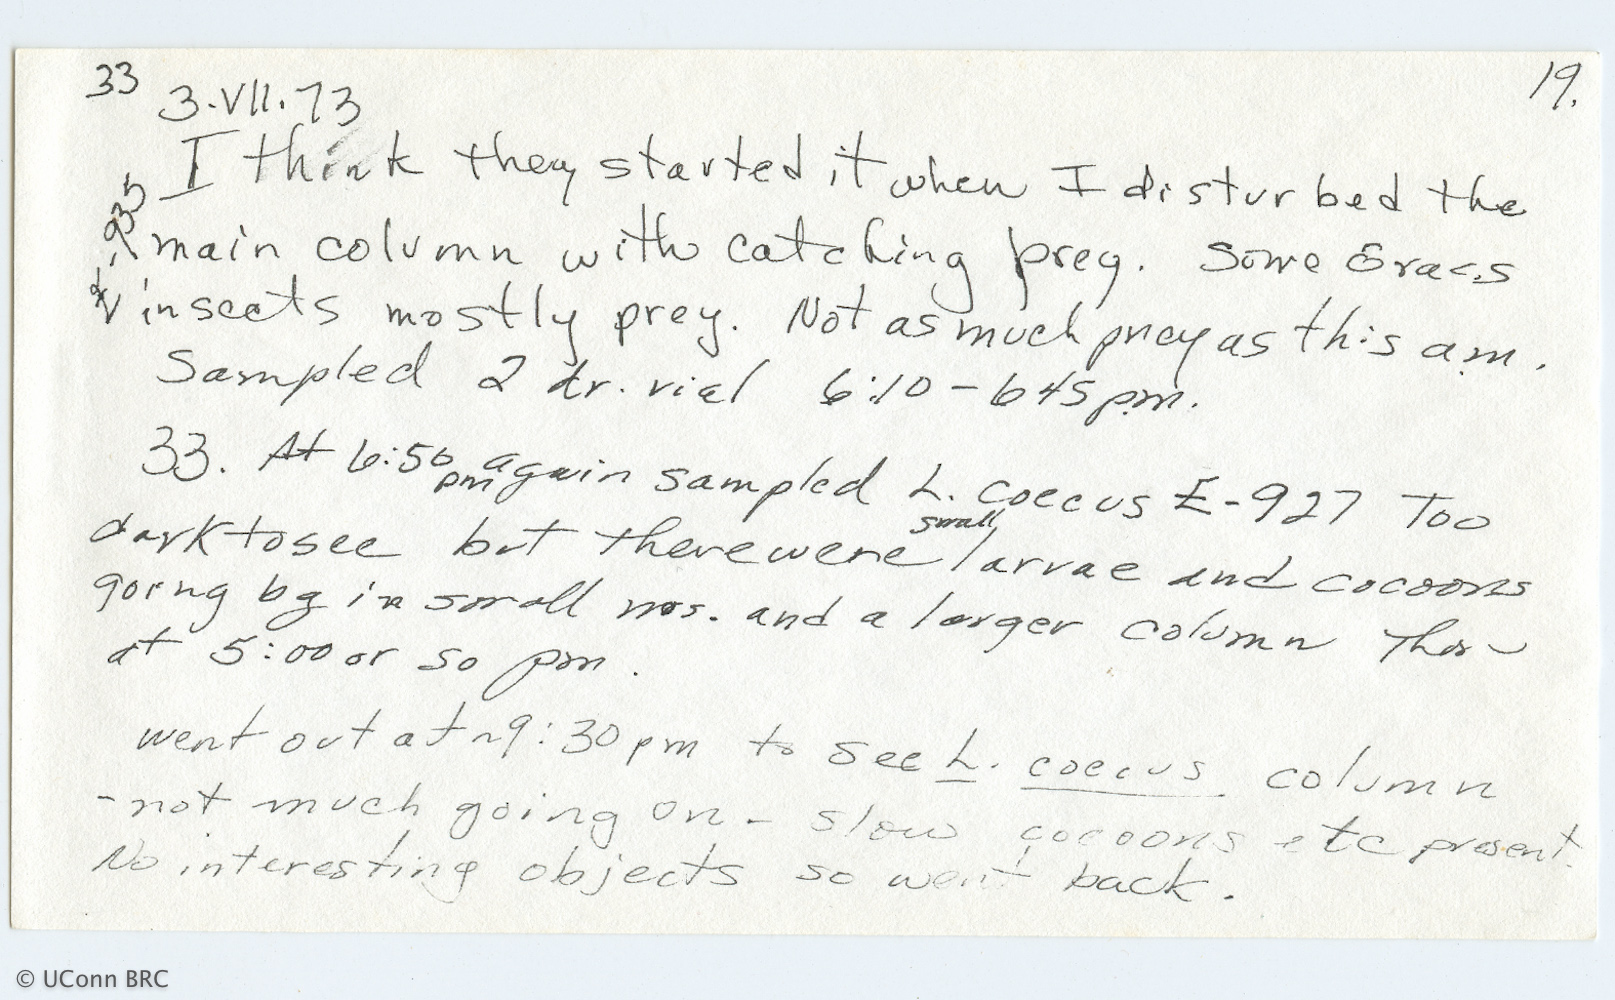 33 3.VII.73 19.
I think they started it when I disturbed the
main column with catching prey. Some
insects mostly prey. Not as much prey as this am.
Sampled 2 dr. vial 6:10 - 645 pm.
33. At 6:50 pm again sampled L. coecus E-927 Too
dark to see but there were small larvae and cocoons
going by in small nos. and a larger column than
at 5:00 or so pm.
went out at ~9:30 pm to see L. coecus column
- not much going on - slow cocoons etc present.
No interesting objects so went back.
© UConn BRC